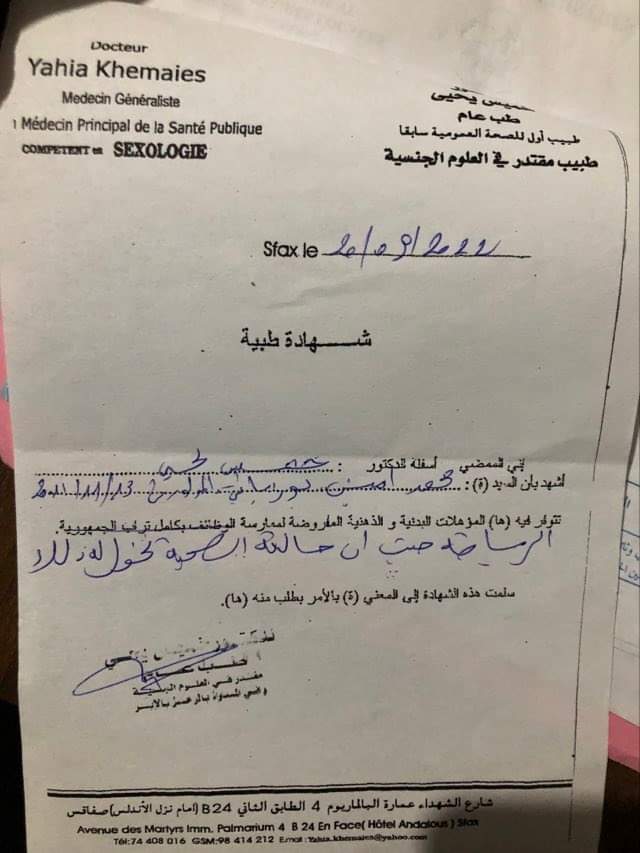 Docteur
Yahia Khemaies
Medecin Généraliste
Médecin Principal de la Santé Publique
COMPETENT en SEXOLOGIE
يحيى
طب عام
طبيب أول للصحة العمومية سابقا
طبيب مقتدر في العلوم الجنسية
Sfax le 20/09/2022
شهادة طبية
إني الممضي أسفله الدكتور : خميس يحيى
أشهد بأن السيد (ة) : محمد أمين 2011/11/13
تتوفر فيه (ها) المؤهلات البدنية و الذهنية المفروضة لممارسة الوظائف بكامل تراب الجمهورية.
الرياضة حيث أن حالته الصحية تخول له ذلك
سلمت هذه الشهادة إلى المعني (ة) بالأمر بطلب منه (ها).
طب عام
مقتدر في العلوم الجنسية
شارع الشهداء عمارة البالماريوم 4 الطابق الثاني B 24 (أمام نزل الأندلس) صفاقس
Avenue des Martyrs Imm. Palmarium 4 B 24 En Face( Hôtel Andalous ) Sfax
Tél: 74 408 016 GSM: 98 414 212 Email : Yahia.khemaies@yahoo.com